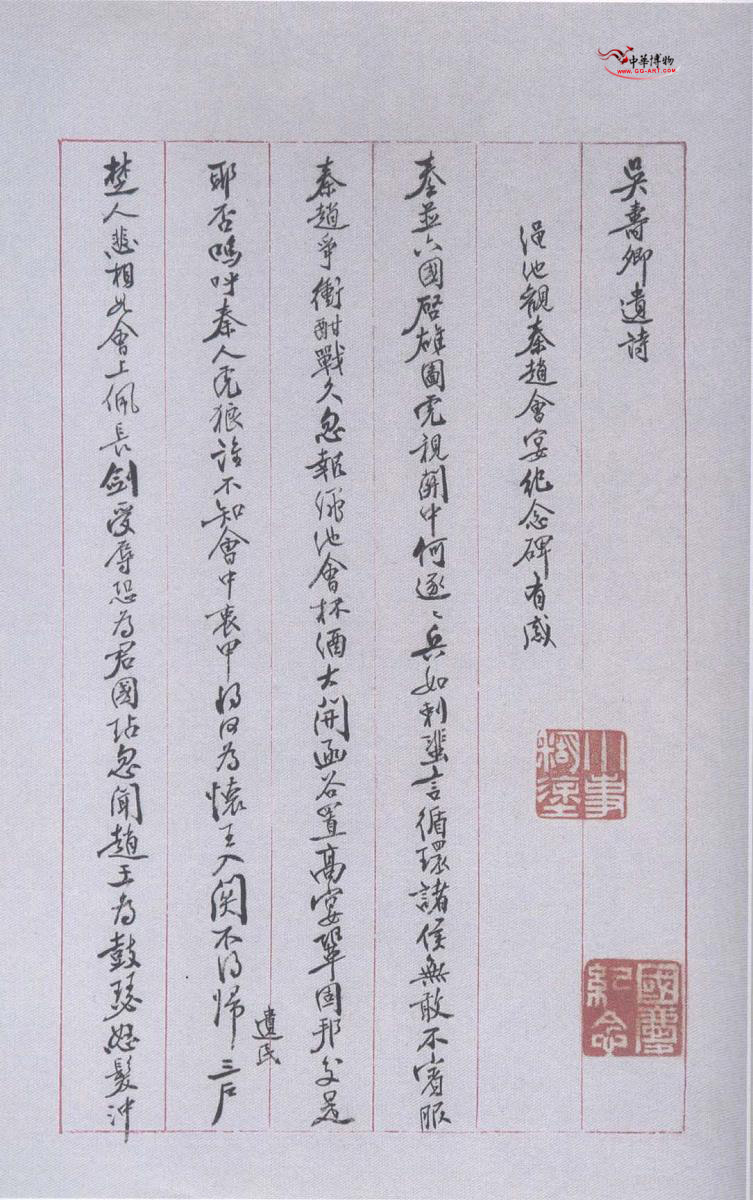 中華博物
WWW.GG-ART.COM
吳壽卿遺詩
澠池觀秦趙會宴紀念碑有感
秦並六國啓雄圖虎視關中何逐〻兵如刺蜚言循環諸侯無敢不賓服
秦趙爭衡酣戰久忽報澠池會杯酒大開函谷置高宴鞏固邦交是
耶否嗚呼秦人虎狼誰不知會中衷甲將何為懷王入関不得歸三戶
遺民
楚人悲相如會上佩長劍受辱恐為君國玷忽聞趙王為鼓瑟怒髮沖
小事糊塗
國慶紀念